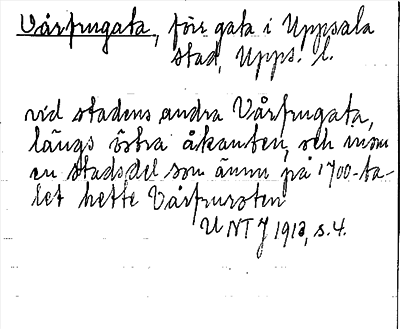 Vårfrugata, förr gata i Uppsala
stad, Upps. l.
vid stadens andra Vårfrugata,
längs östra åkanten, och inom
en stadsdel som ännu på 1700-ta-
let hette Vårfruroten
UNT J 1913, s. 4.